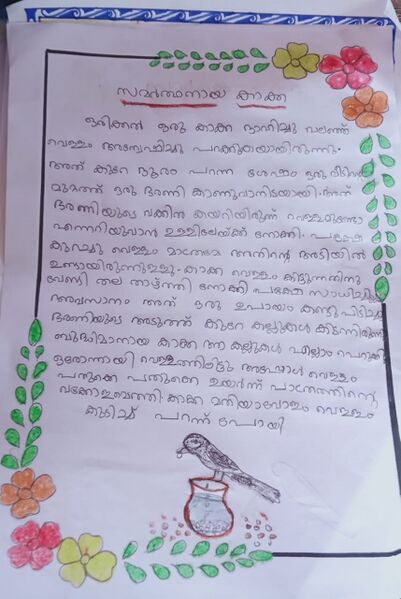 സമർത്ഥനായ കാക്ക
ഒരിക്കൽ ഒരു കാക്ക ദാഹിച്ചു വലഞ്ഞ്
വെള്ളം അന്വേഷിച്ചു പറക്കുകയായിരുന്നു.
അത് കുറേ ദൂരം പറന്ന ശേഷം ഒരു വീടിന്റെ
മുമ്പത്ത് ഒരു ഭരണി കാണുവാനിടയായി. അത്
ഭരണിയുടെ വക്കിൽ കയറിയിരുന്ന് വെള്ളമുണ്ടോ
എന്നറിയുവാൻ ഉള്ളിലേയ്ക്ക് നോക്കി. പക്ഷേ
കുറച്ചു വെള്ളം മാത്രമേ അതിന്റെ അടിയിൽ
ഉണ്ടായിരുന്നുള്ളു. കാക്ക വെള്ളം കിട്ടുന്നതിനു
വേണ്ടി തല താഴ്ത്തി നോക്കി പക്ഷേ സാധിച്ചില്ല
അവസാനം അത് ഒരു ഉപായം കണ്ടുപിടിച്ചു
ഭരണിയുടെ അടുത്ത് കുറേ കല്ലുകൾ കിടന്നിരുന്നു
ബുദ്ധിമാനായ കാക്ക ആ കല്ലുകൾ എല്ലാം പെറുക്കി
ഒരോന്നായി വെള്ളത്തിലിട്ടു അപ്പോൾ വെള്ളം
പതുക്കെ പതുക്കെ ഉയർന്ന് പാത്രത്തിന്റെ
വക്കോളമെത്തി. കാക്ക മതിയാവോളം വെള്ളം
കുടിച്ച് പറന്ന് പോയി